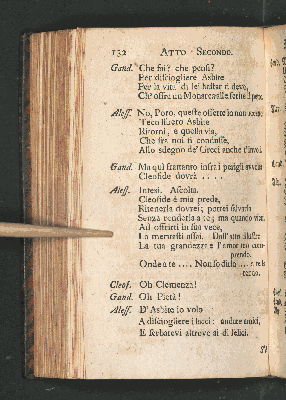 132 ATTO SECONDO.
Gand. Che fai? che pensi?
Per disciogliere Asbite
Per la vita di lei bastar ti deve,
Ch' offre un Monarca
Aless. No, Poro, queste offerte io non
Teco libero Asbite
Ritorni, e quella via,
Che fra noi ti condusse,
Allo sdegno de' Greci anche t'involi
Gand. Ma qui frattanto infra i perigli
Cleofide dovrà . . . . .
Aless. Intesi. Ascolta.
Cleofide è mia preda,
Ritenerla dovrei; potrei
Senza renderla a te; ma quando
Ad offrirti in sua vece,
La meritasti assai. Dall' atto illustre
La tua grandezza e l'amor tuo com-
prendo.
Onde a te .... Non so dirlo ....
Cleof. Oh Clemenza!
Gand. Oh Pietà!
Aless. D' Asbite io volo
A disciogliere i lacci: andate amici,
E serbatevi altrove ai dì felici.